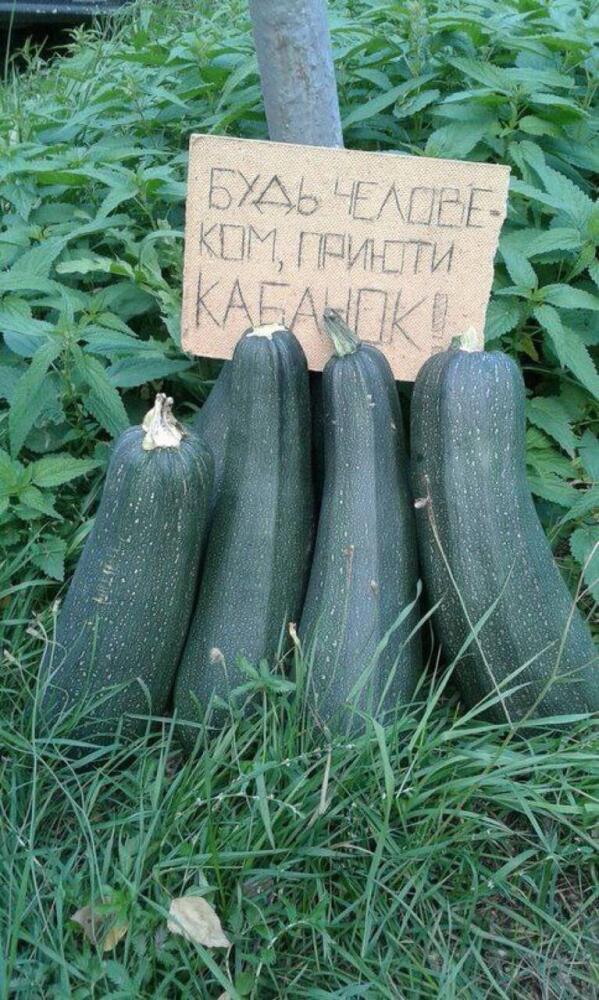 БУДЬ ЧЕЛОВЕ-
КОМ, ПРИЮТИ
КАБАЧОК!